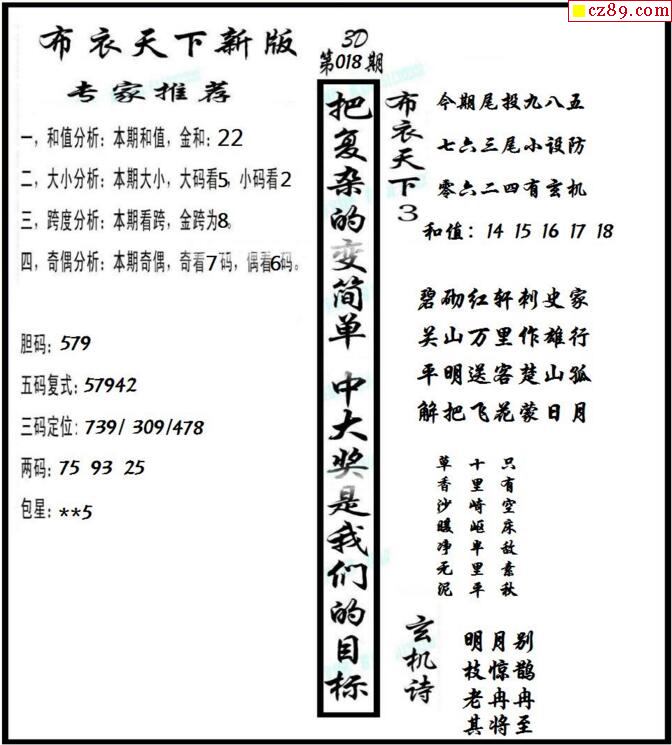 cz89.com
布衣天下新版
专家推荐
一，和值分析：本期和值，金和：22
二，大小分析：本期大小，大码看5，小码看2
三，跨度分析：本期看跨，金跨为8。
四，奇偶分析：本期奇偶，奇看7码，偶看6码。
胆码：579
五码复式：57942
三码定位：739/ 309/478
两码：75 93 25
包星：**5
3D
第018期
把复杂的变简单 中大奖是我们的目标
布衣天下3
今期尾投九八五
七六三尾小设防
零六二四有玄机
和值：14 15 16 17 18
碧砌红轩刺史家
关山万里作雄行
平明送客楚山孤
解把飞花蒙日月
草香沙暖净无泥
十里崎岖半里平
只有空床敌素秋
玄机诗
明月别
枝惊鹊
老冉冉
其将至